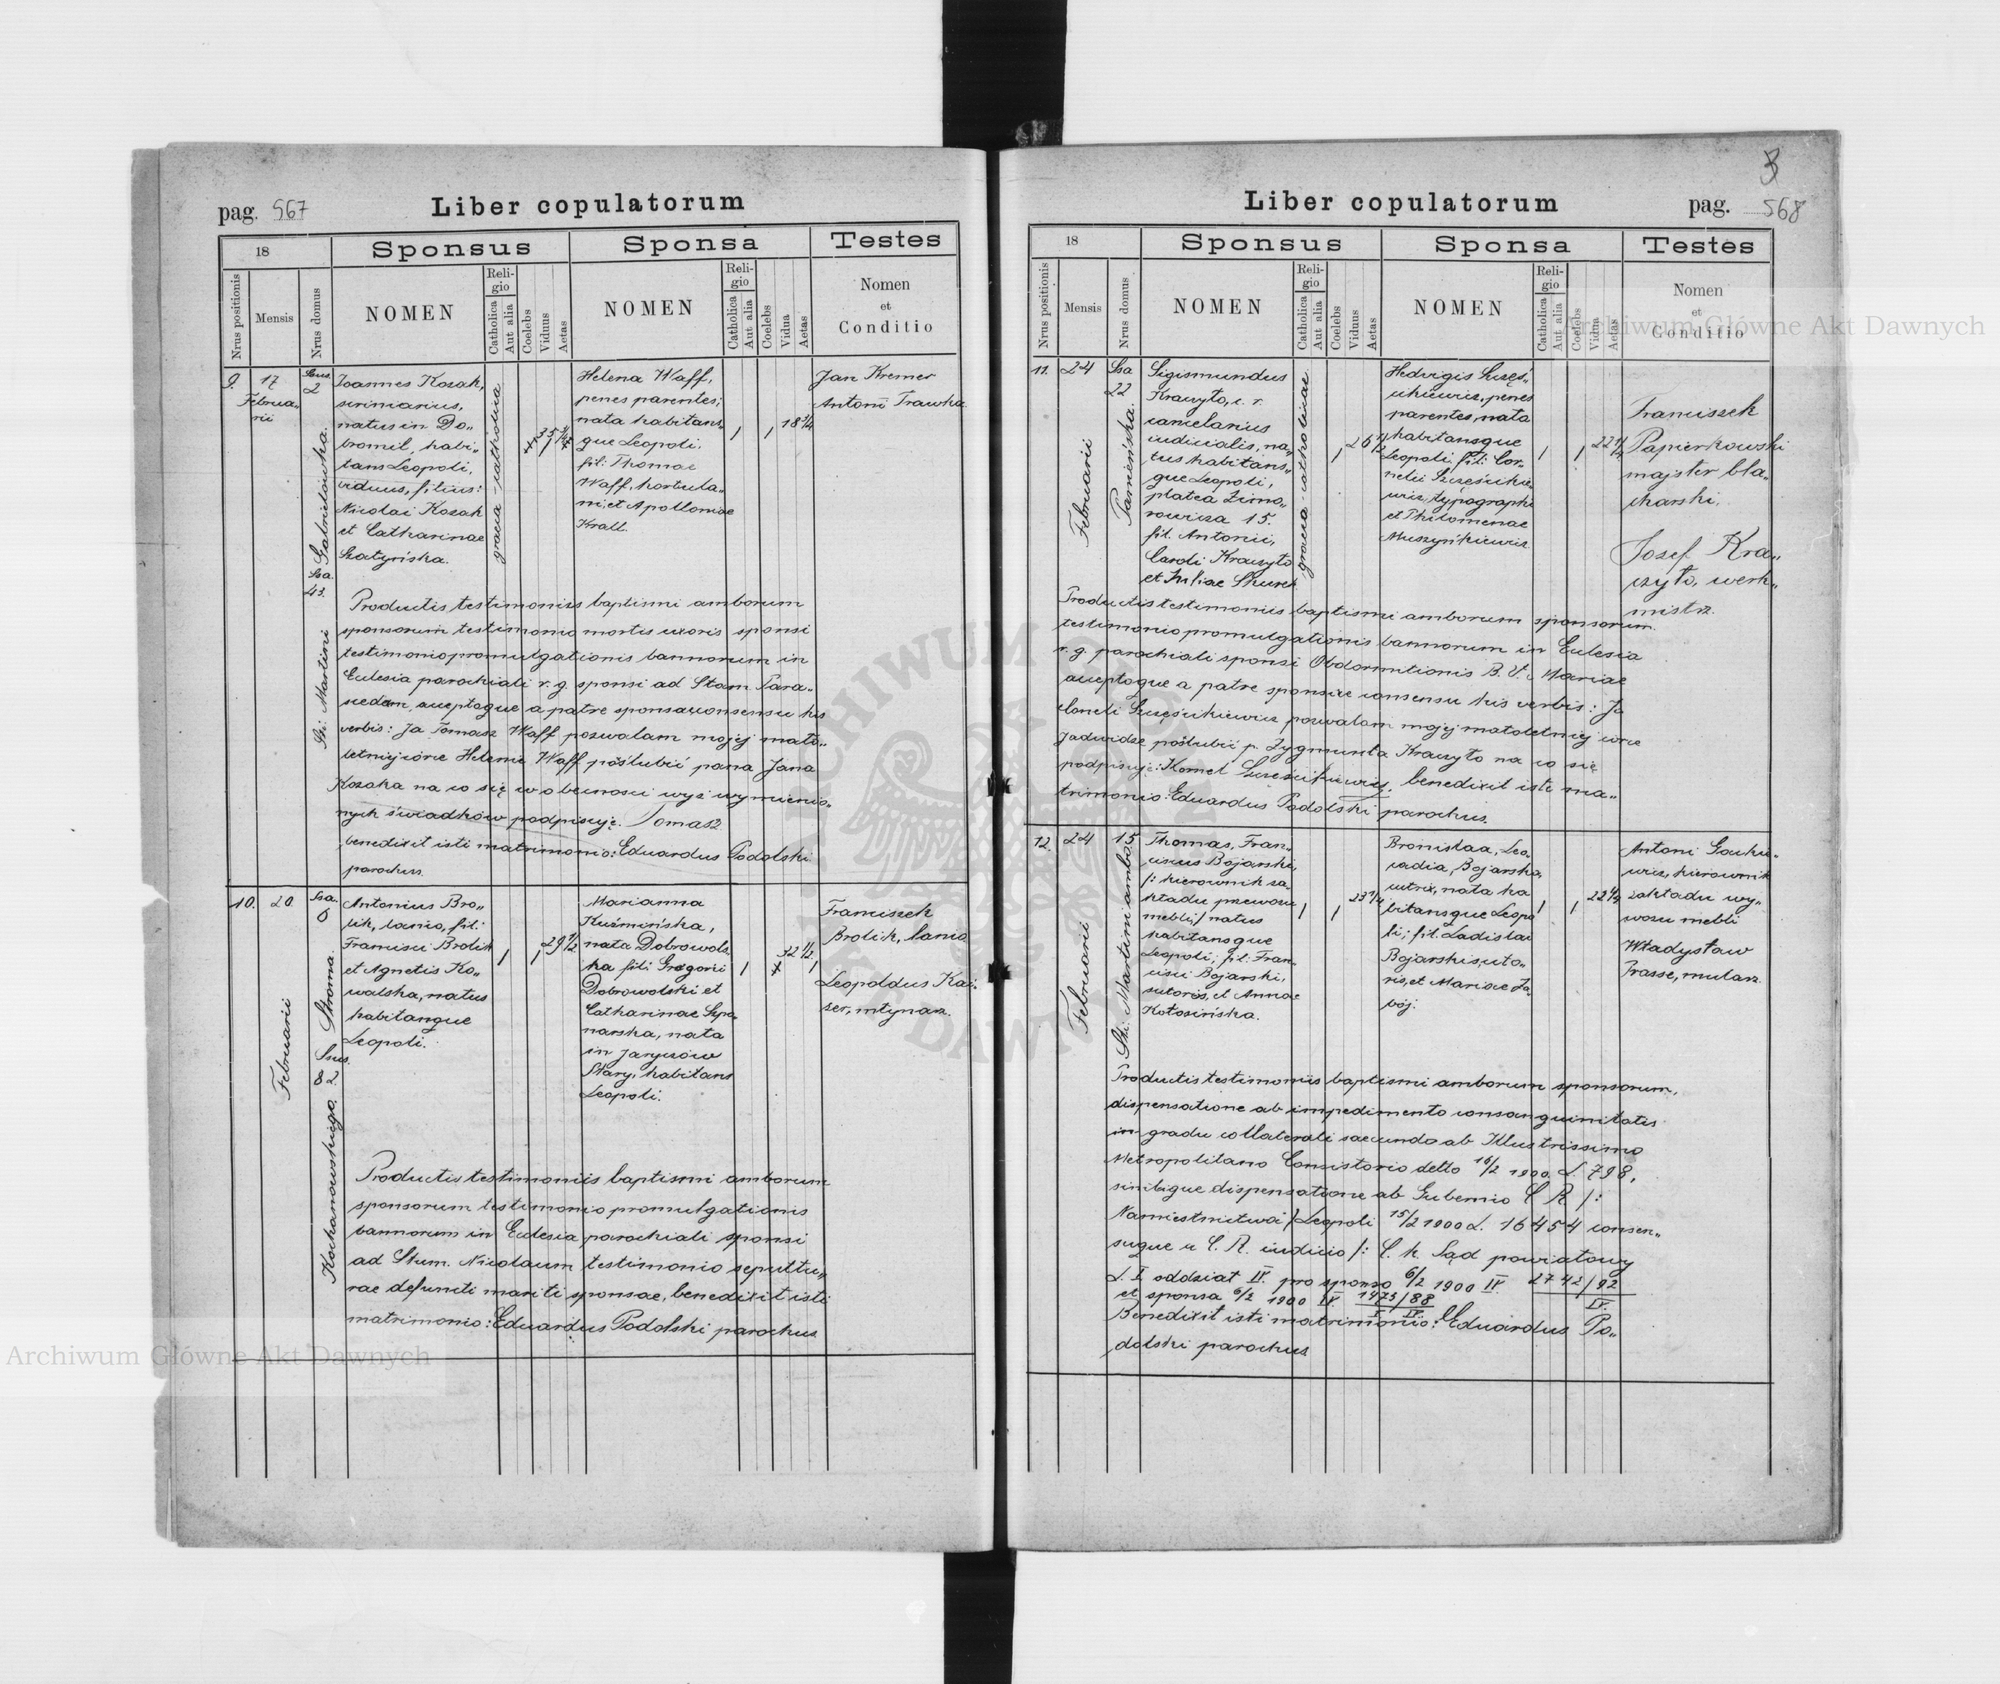 pag. 567
Liber copulatorum
18
Sponsus
Sponsa
Testes
Nrus positionis
Mensis
Nrus domus
NOMEN
Religio
Catholica
Aut alia
Coelebs
Viduus
Aetas
NOMEN
Religio
Catholica
Aut alia
Coelebs
Vidua
Aetas
Nomen
et
Conditio
9.
17
Februa„
rii
Snus.
2
Gabrielówka.
Ssa.
43.
Sti: Martini
Joannes Kozak,
scriniarius,
natus in Do„
bromil, habi„
tans Leopoli,
viduus, filius:
Nicolai Kozak
et Catharinae
Szatyńska.
graeca-catholica
35
Helena Waff,
penes parentes,
nata habitans„
que Leopoli.
fil: Thomae
Waff, hortula„
ni, et Apolloniae
Krall.
1
1
18 1/4
Jan Kremer
Antoni Trawka
Productis testimoniis baptismi amborum
sponsorum testimonio mortis uxoris sponsi
testimonio promulgationis bannorum in
Eclesia parochiali r. g. sponsi ad Stam. Para„
scedam, acceptoque a patre sponsae consensu his
verbis: Ja Tomasz Waff pozwalam mojej mało„
letniej córce Helenie Waff poślubić pana Jana
Kozaka na co się w obecności wyż wymienio„
nych świadków podpisuję. Tomasz
benedixit isti matrimonio: Eduardus Podolski
parochus.
10.
20.
Februarii
Ssa.
6
Stroma.
Snus.
82.
Kochanowskiego.
Antonius Bro„
lik, lanio, fil:
Francisci Brolik
et Agnetis Ko„
walska, natus
habitansque
Leopoli.
1
1
29 1/2
Marianna
Kuźmińska,
nata Dobrowols„
ka fil: Gregorii
Dobrowolski et
Catharinae Szpa„
narska, nata
in Jaryczów
Stary, habitans
Leopoli.
1
32 1/2
1
Franciszek
Brolik, lanio
Leopoldus Kai„
ser, młynarz.
Productis testimoniis baptismi amborum
sponsorum testimonio promulgationis
bannorum in Eclesia parochiali sponsi
ad Stum. Nicolaum testimonio sepultu„
rae defuncti mariti sponsae, benedixit isti
matrimonio: Eduardus Podolski parochus
Archiwum Główne Akt Dawnych
3
Liber copulatorum
pag. 568
18
Sponsus
Sponsa
Testes
Nrus positionis
Mensis
Nrus domus
NOMEN
Religio
Catholica
Aut alia
Coelebs
Viduus
Aetas
NOMEN
Religio
Catholica
Aut alia
Coelebs
Vidua
Aetas
Nomen
et
Conditio
Archiwum Główne Akt Dawnych
11.
24
Februarii
Ssa
22
Panieńska.
Sigismundus
Kraczyło, c. r.
cancelarius
iudicialis, na„
tus habitans„
que Leopoli,
platea Zimo„
rowicza 15.
fil. Antonii,
Caroli Kraczyło
et Juliae Skurek
graeca-catholicae
1
26 1/2
Hedvigis Szczęś„
cikiewicz, penes
parentes, nata
habitansque
Leopoli, fil: Cor„
nelii Szczęścikie„
wicz, typographi
et Philomenae
Muszyńkiewicz.
1
1
22 1/4
Franciszek
Papierkowski
majster bla„
charski.
Josef Kra„
czyło, werk„
mistrz.
Productis testimoniis baptismi amborum sponsorum.
testimonio promulgationis bannorum in Eclesia
r. g. parochiali sponsi Obdormitionis B. V. Mariae
acceptoque a patre sponsae consensu his verbis: Ja
Corneli Szczęścikiewicz pozwalam mojej małoletniej córce
Jadwidze poślubić p. Zygmunta Kraczyło na co się
podpisuję: Kornel Szczęścikiewicz, benedixit isti ma„
trimonio: Eduardus Podolski parochus.
12.
24
Februarii
15.
Sti: Martini ambo.
Thomas, Fran„
ciscus Bojarski,
/: kierownik za„
kładu przewozu
mebli:/ natus
habitansque
Leopoli; fil: Fran„
cisci Bojarski,
sutoris, et Annae
Kotosińska.
1
1
23 1/4
Bronislaa, Leo„
cadia, Bojarska,
sutrix, nata ha
bitansque Leopo
li; fil. Ladislai
Bojarski suto„
ris, et Mariae Za„
bój.
1
1
22 1/4
Antoni Gackie„
wicz, kierownik
zakładu wy„
wozu mebli
Władysław
Prasse, mularz.
Productis testimoniis baptismi amborum sponsorum,
dispensatione ab impedimento consanguinitatis
in gradu collaterali saecundo ab Illustrissimo
Metropolitano Consistorio detto 16/2 1900. L. 798,
similique dispensatione ab Gubernio C R /:
Namiestnictwa:/ Leopoli 15/2 1900 L. 16454 consen„
suque a C. R. iudicio /: C. k. Sąd powiatowy
L. I oddział IV. pro sponso 6/2 1900 IV. 2742/92
IV.
et sponsa 6/2 1900 IV. 1473/88
I IV.
Benedixit isti matrimonio: Eduardus Po„
dolski parochus